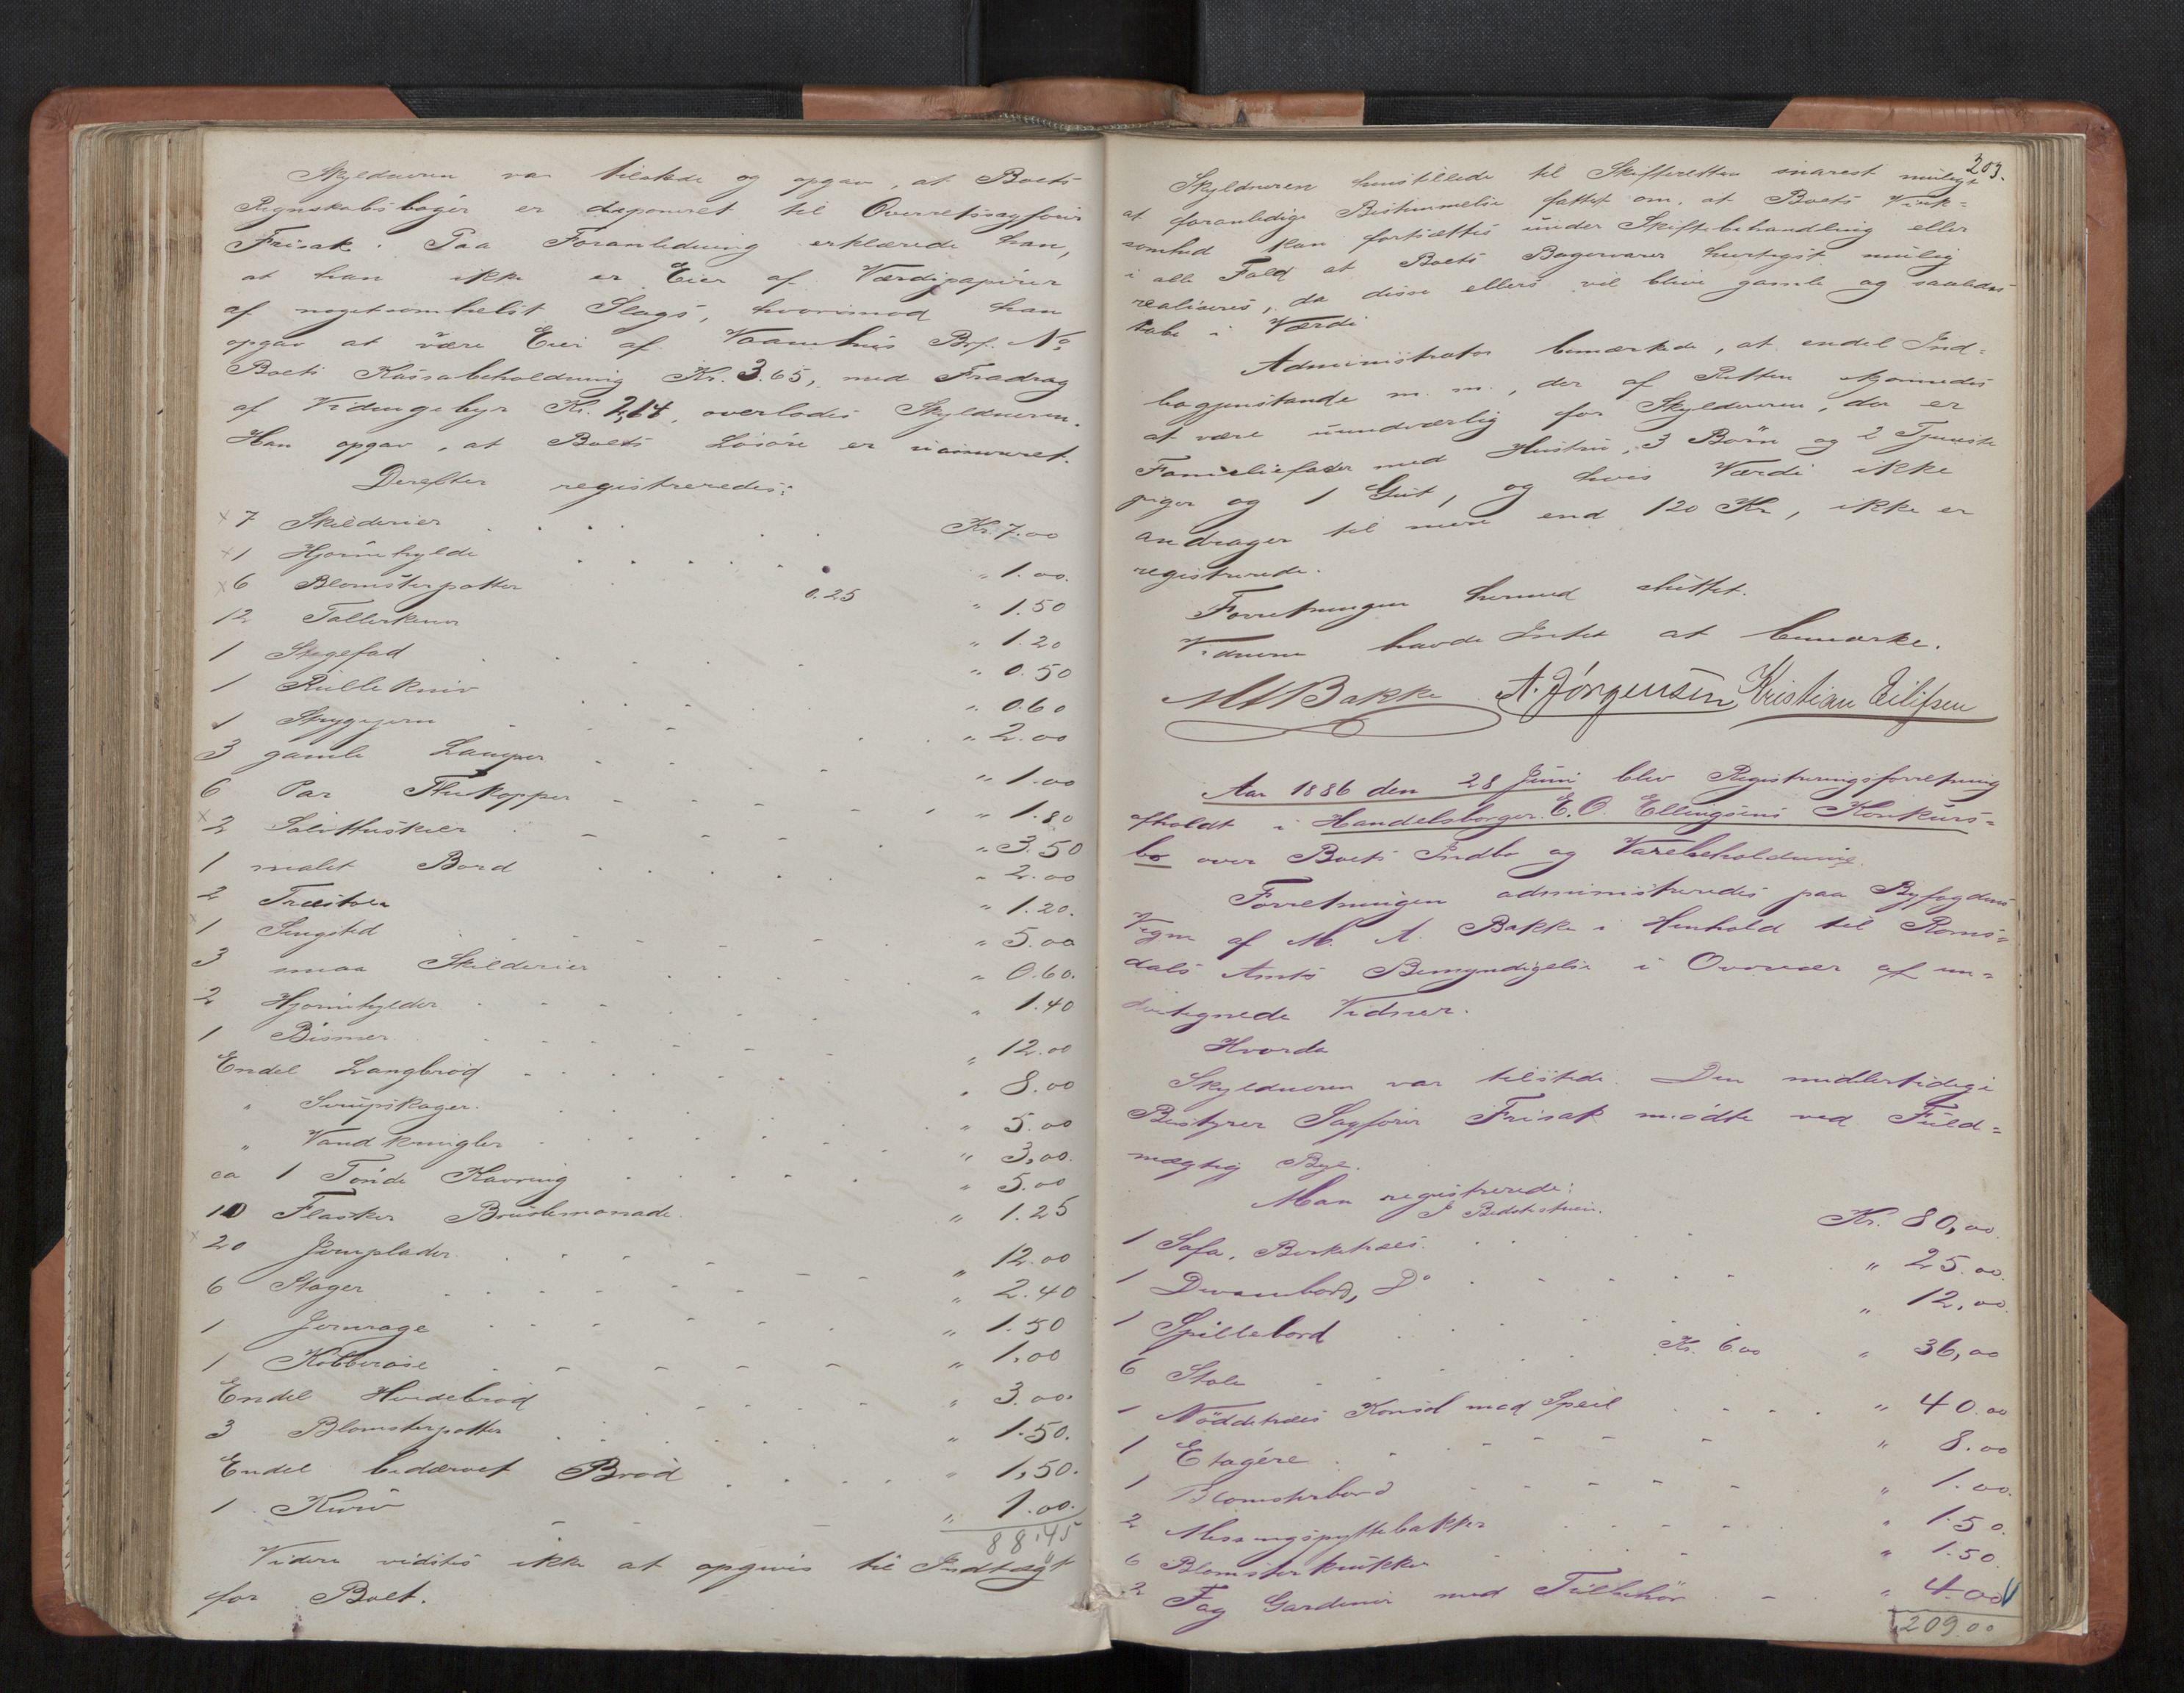 Skyldneren var tilstede og opgav, at Boets
Regnskabsbøger er deponeret til Overretssagfører
Frisak. Paa Foranledning erklærede han,
at han ikke er Eier af Værdipapirer
af nogetsomhelst Slags, hvorimod han
opgav at være Eier af Vaanehus Brf. No
Boets Kassabeholdning Kr. 3.65, med Fradrag
af Vidnegebyr Kr. 2,14, overlodes Skyldneren.
Han opgav, at Boets Løsøre er uassureret.
Derefter registreredes:
7 Skilderier Kr. 7.00
1 Hjørnehylde " 1.00.
6 Blomsterpotter 0.25 " 1.50
12 Tallerkener " 1.20
1 Stegefad " 0.50
1 Rullekniv " 0.60
1 Strygejern " 2.00
3 gamle Lamper " 1.00
6 Par Thekopper " 1.80
2 Sølvthuskeer " 3.50
1 malet Bord " 2.00
2 Træstole " 1.20.
1 Sengsted " 5.00
3 smaa Skilderier " 0.60.
2 Hjørnehylder " 1.40
1 Bismer " 12.00
Endel Langbrød " 8.00
" Sirupskager " 5.00
" Vandkringler " 3,00.
ca 1 Tønde Kavring " 5.00
10 Flasker Bruslemonade " 1.25
20 Jernplader " 12.00
6 Stager " 2.40
1 Jernrage " 1.50
1 Kobberøse " 1,00
Endel Hvedebrød " 3.00.
3 Blomsterpotter " 1.50.
Endel bedærvet Brød " 1,50.
1 Kurv " 1.00.
88.45
Videre vidstes ikke at opgives til Indtægt
for Boet.
203.
Skyldneren henstillede til Skifteretten snarest muligt
at foranledige Bestemmelse fattet om, at Boets Virk=
somhed kan fortsættes under Skiftebehandling eller
i alle Fald at Boets Bagervarer hurtigst mulig
realiseres, da disse ellers vil blive gamle og saaledes
tabe i Værdi
Administrator bemærkede, at endel Ind=
bogjenstande m. m., der af Retten skjønnedes
at være uundværlig for Skyldneren, der er
Familiefader med Hustru, 3 Børn og 2 Tjeneste
piger og 1 Gut, og hvis Værdi ikke
andrager til mere end 120 Kr, ikke er
registrerede.
Forretningen hermed sluttet.
Vidnerne havde Intet at bemærke.
MABakke A. Jørgensen, Kristian Eilifsen
Aar 1886 den 28 Juni blev Registreringsforretning
afholdt i Handelsborger E. O. Ellingsens Konkurs=
bo over Boets Indbo og Varebeholdning.
Forretningen administreredes paa Byfogdens
Vegne af M. A. Bakke i Henhold til Roms=
dals Amts Bemyndigelse i Overvær af un=
dertegnede Vidner.
Hvorda
Skyldneren var tilstede. Den midlertidige
Bestyrer Sagfører Frisak mødte ved Fuld=
mægtig Bye.
Man registrerede:
I Bedstestuen.
1 Sofa, Birketræs Kr. 80,00.
1 Divanbord, Do " 25.00.
1 Spillebord " 12,00.
6 Stole Kr. 6.00 " 36,00
1 Nøddetræs Konsol med Speil " 40.00
1 Etagére " 8.00
1 Blomsterbord " 1.00.
2 Messingspyttebakker " 1.50.
6 Blomsterkrukker " 1.50.
2 Fag Gardiner med Tilbehør " 4.00
209.00